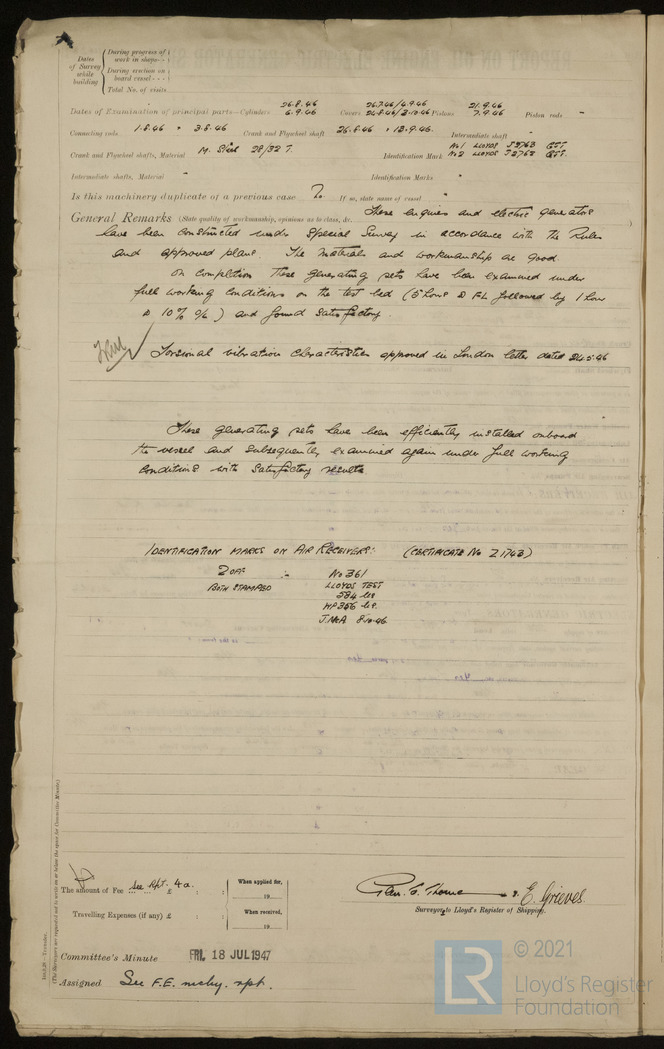 Dates of Survey while building
During progress of work in shops - -
During erection on board vessel - - -
Total No. of visits
26.8.46 26.7.46/4.9.46 21.9.46
Dates of Examination of principal parts—Cylinders 6.9.46 Covers Pistons 7.9.46 Piston rods -
Connecting rods 1.8.46 " 3.8.46 Crank and Flywheel shaft 26.8.46 " 13.9.46. Intermediate shaft -
Crank and Flywheel shafts, Material M. Steel 28/32 T. Identification Mark No 1 LLOYDS
No 2 LLOYDS
Intermediate shafts, Material - Identification Marks -
Is this machinery duplicate of a previous case If so, state name of vessel -
General Remarks (State quality of workmanship, opinions as to class, &c. These engines and electric generators
have been constructed under Special Survey in accordance with the Rules
and approved plans. The materials and workmanship are good.
On completion these generating sets have been examined under
full working conditions on the test bed (5 hours @ FL followed by 1 hour
@ 10% O/L) and found satisfactory.
Torsional vibration characteristics approved in London letter dated 24.5.46
These generating sets have been efficiently installed onboard
the vessel and subsequently examined again under full working
conditions with satisfactory results
IDENTIFICATION MARKS ON AIR RECEIVERS: (CERTIFICATE No Z1743)
2 OFF :- No 361
BOTH STAMPED LLOYDS TEST
584 lbs
WP 356 lbs.
J.McA 8.10.46
The amount of Fee ... £ See Rpt. 4a. : : When applied for,
19
Travelling Expenses (if any) £ : : When received,
19
E. Grieves.
Surveyor to Lloyd's Register of Shipping.
Committee's Minute FRI. 18 JUL 1947
Assigned See F.E. mchy. rpt.
(The Surveyors are requested not to write on or below the space for Committee Minute.)
LR
© 2021
Lloyd's Register
Foundation